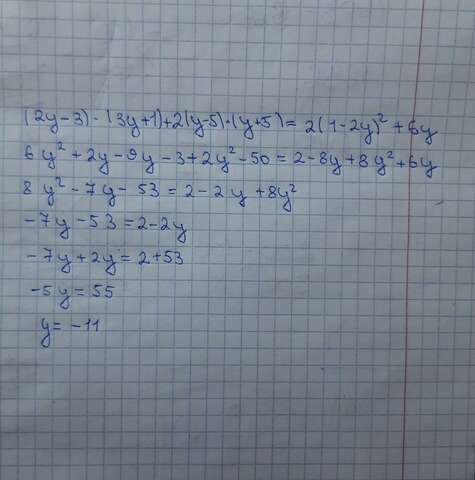 (2y-3)·(3y+1)+2(y-5)·(y+5)=2(1-2y)²+6y
6y²+2y-9y-3+2y²-50=2-8y+8y²+6y
8y²-7y-53=2-2y+8y²
-7y-53=2-2y
-7y+2y=2+53
-5y=55
y=-11